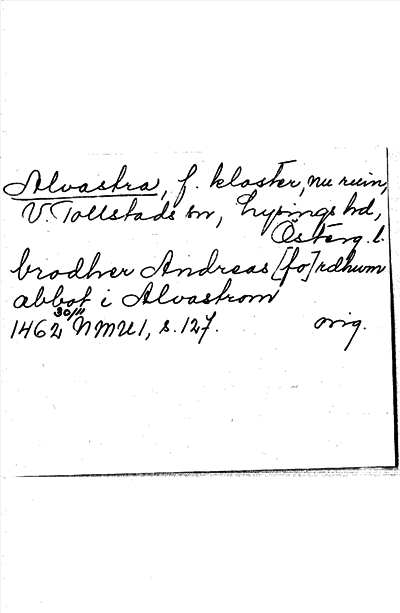 Alvastra, f. kloster, nu ruin,
V. Tollstads sn, Lysings hd,
Österg. l.
brodher Andreas [fo]rdhum
abbot i Alvastrom
1462 30/11 NMU 1, s. 127. orig.